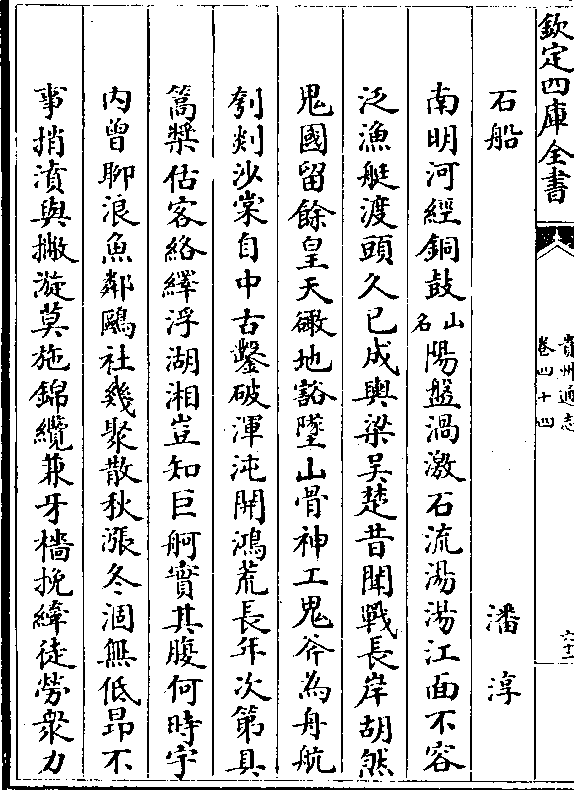 欽定四庫全書
貴州通志
卷四十四
六十二
石船
潘淳
南明河經銅鼓山名陽盤渦激石流湯湯江面不容
泛漁艇渡頭久已成輿梁吴楚昔聞戰長岸胡然
鬼國留餘皇天礮地豁墜山骨神工鬼斧為舟航
刳剡沙棠自中古鑿破渾沌開鴻荒長年次第具
篙槳估客絡繹浮湖湘豈知巨舸實其腹何時宇
内曾聊浪魚鄰鷗社幾聚散秋漲冬涸無低昂不
事捎濆與撇漩莫施錦纜兼牙檣挽縴徒勞衆力